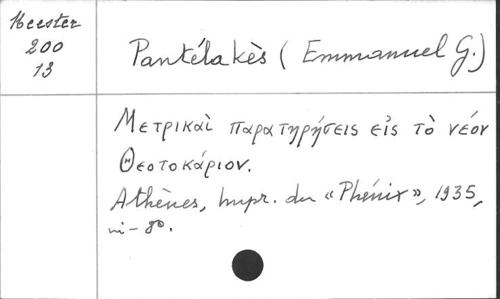 Meester
200
13
Pantélakès (Emmanuel G.)
Μετρικαὶ παρατηρήσεις εἰς τὸ νέον
Θεοτοκάριον.
Athènes, Impr. du «Phénix», 1935,
in-8º.